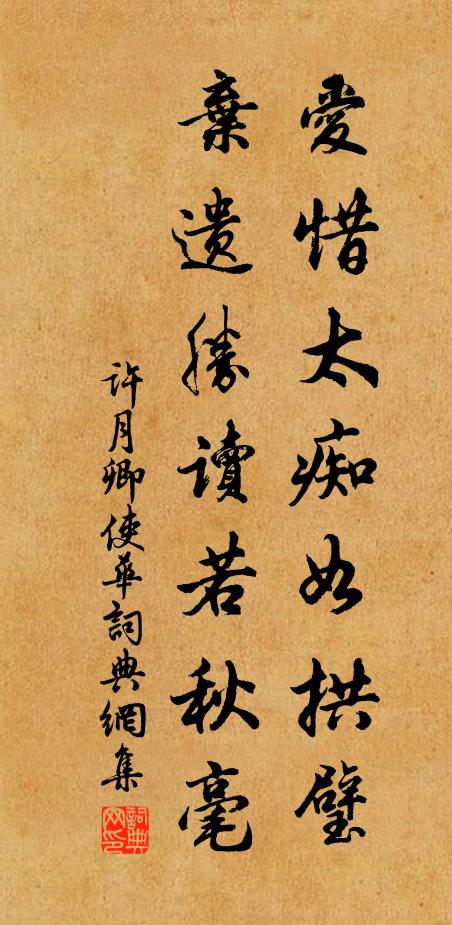 愛惜太痴如拱璧
棄遺勝讀若秋毫
许月卿使華詞典網集
詞典网印